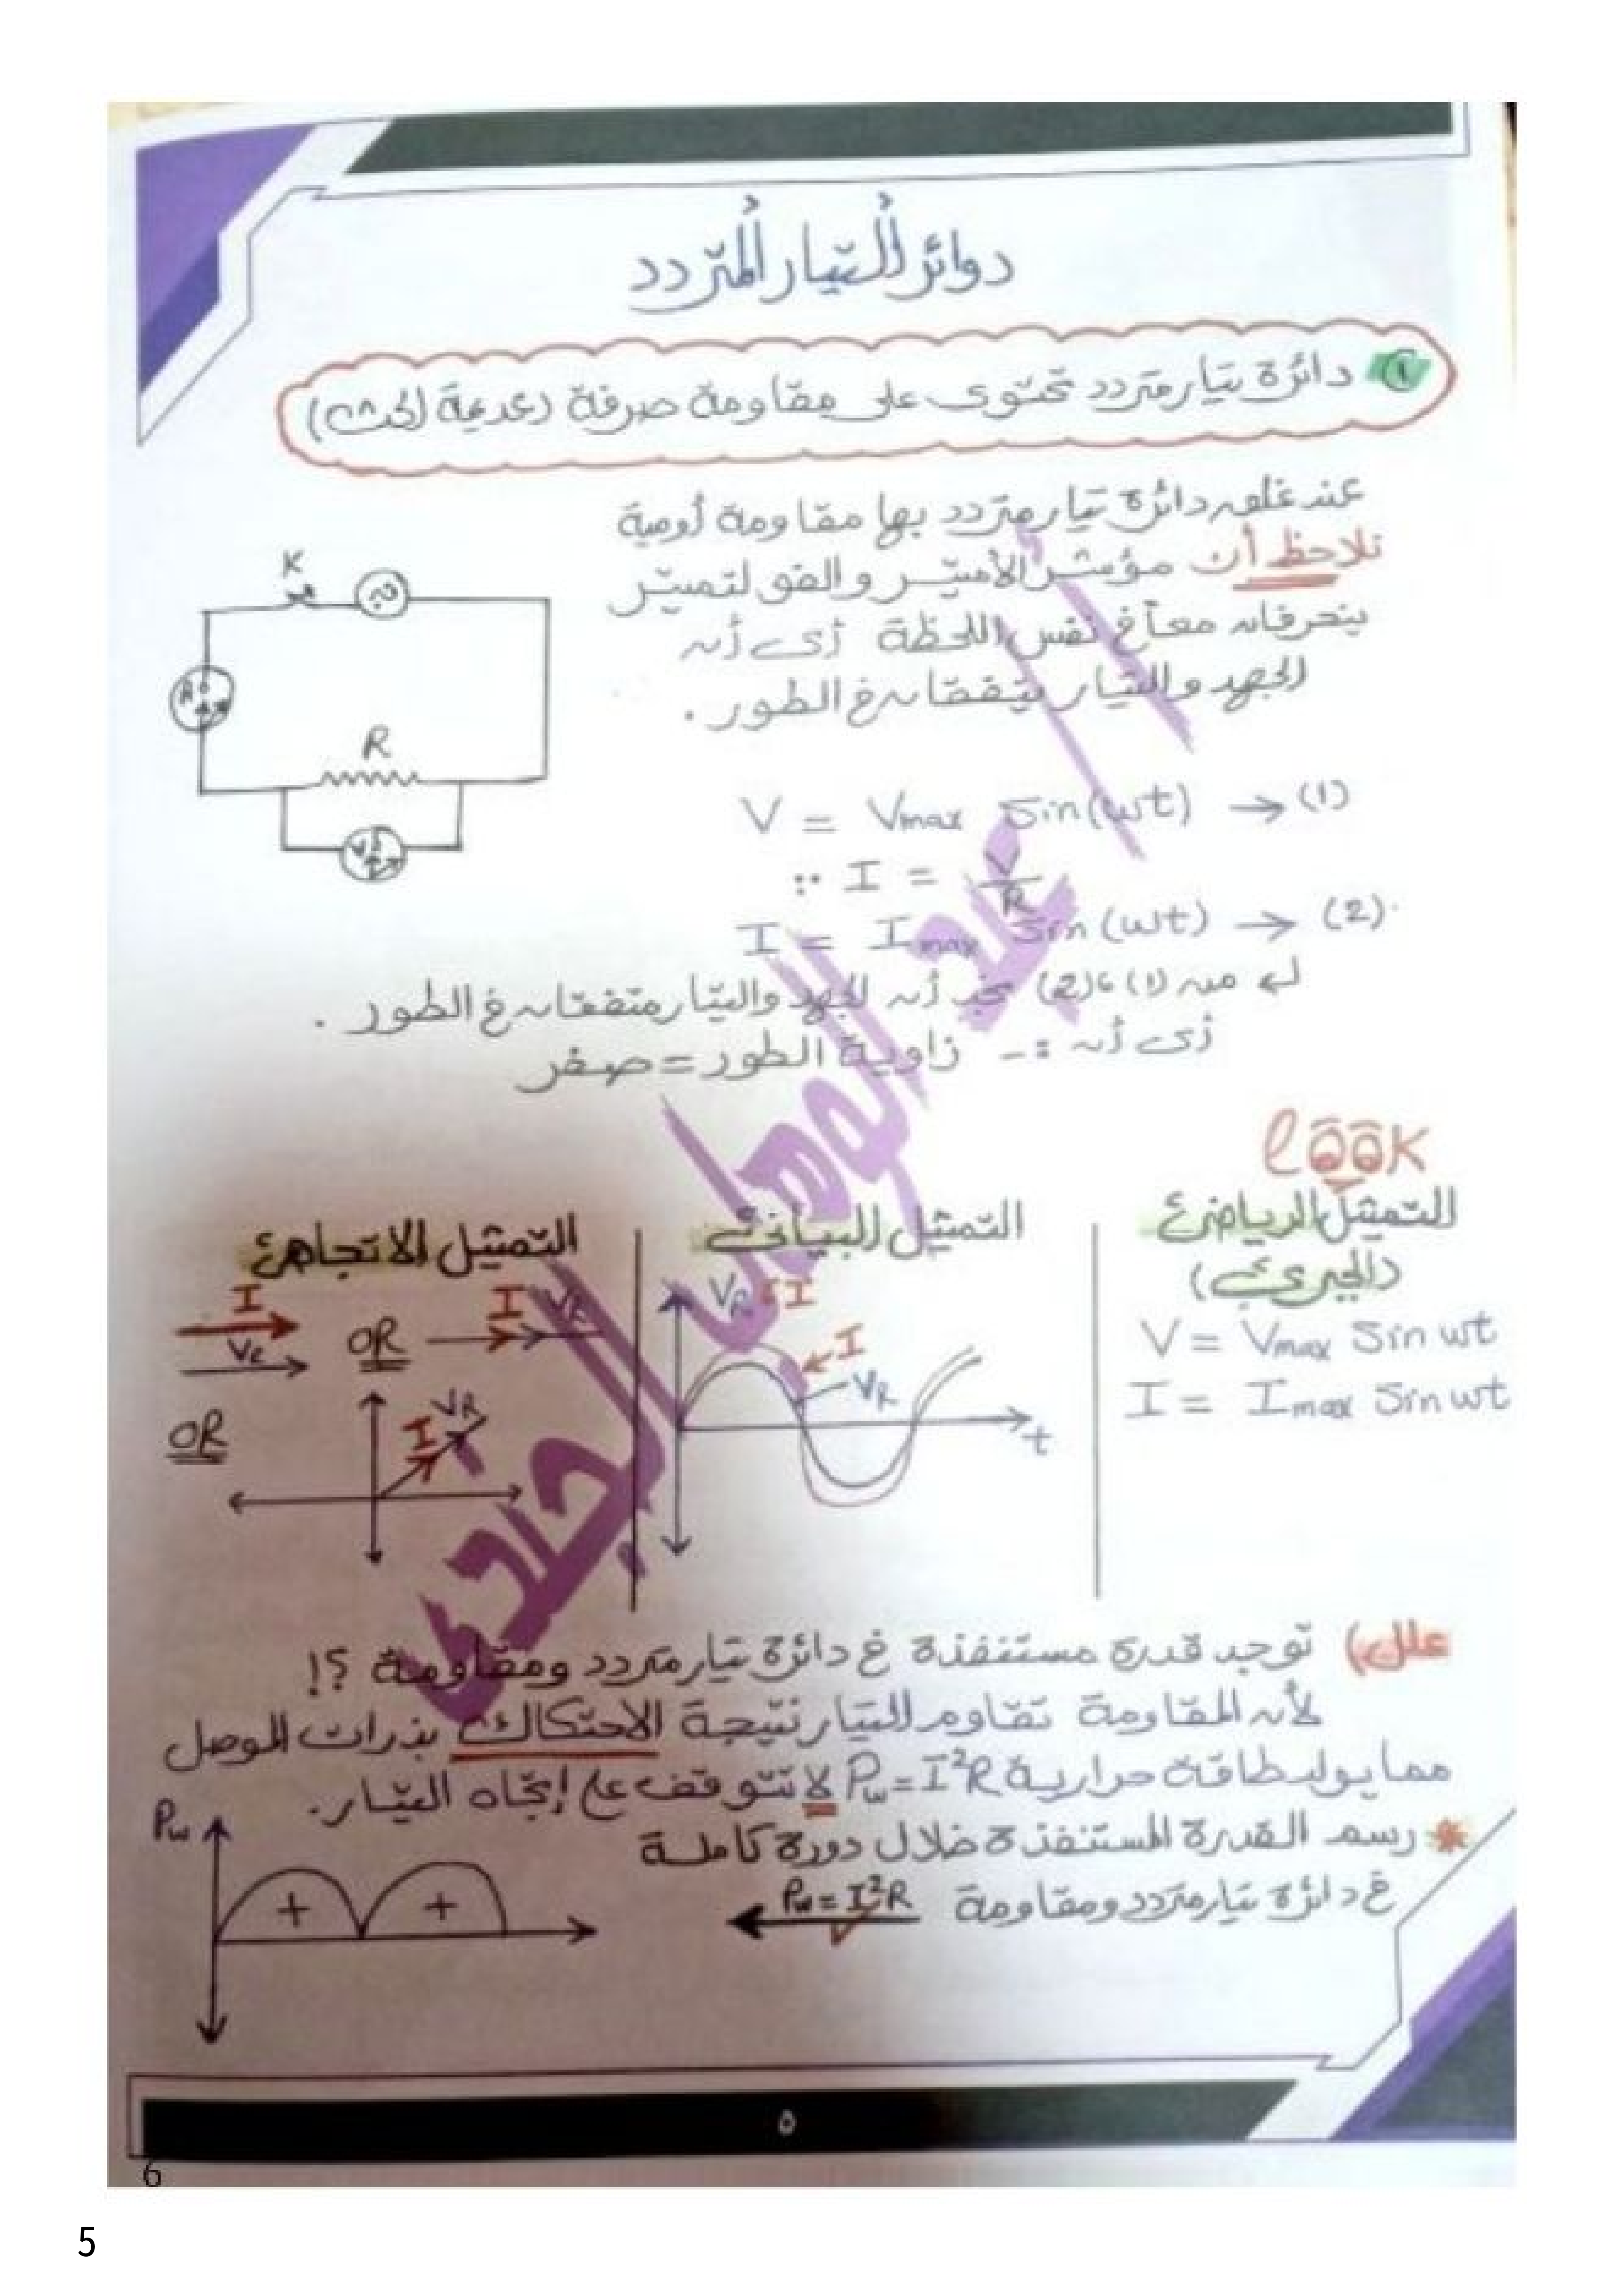 دوائر التيار المتردد
① دائرة تيار متردد تحتوى على مقاومة صرفة (عديمة الحث)
عند غلق دائرة تيار متردد بها مقاومة أومية
نلاحظ أن مؤشر الأميتر والفولتميتر
ينحرفان معاً في نفس اللحظة أى أن
الجهد والتيار يتفقان في الطور .
K
A
R
V
V = Vmax Sin(wt) → (1)
∵ I = V/R
I = Imax Sin(wt) → (2)
من (1) ، (2) نجد أن الجهد والتيار متفقان في الطور .
أى أن :- زاوية الطور = صفر
look
التمثيل الرياضي
(الجبري)
V = Vmax Sin wt
I = Imax Sin wt
التمثيل البياني
VR ، I
I
VR
t
التمثيل الاتجاهي
I
OR
I VR
OR
I VR
علل) توجد قدرة مستنفذة في دائرة تيار متردد ومقاومة ؟!
لأن المقاومة تقاوم التيار نتيجة الاحتكاك بذرات الموصل
مما يولد طاقة حرارية Pw = I²R لا تتوقف على إتجاه التيار.
* رسم القدرة المستنفذة خلال دورة كاملة
في دائرة تيار متردد ومقاومة Pw = I²R
Pw
+ +
عبد الوهاب الجندى
٥
6
5